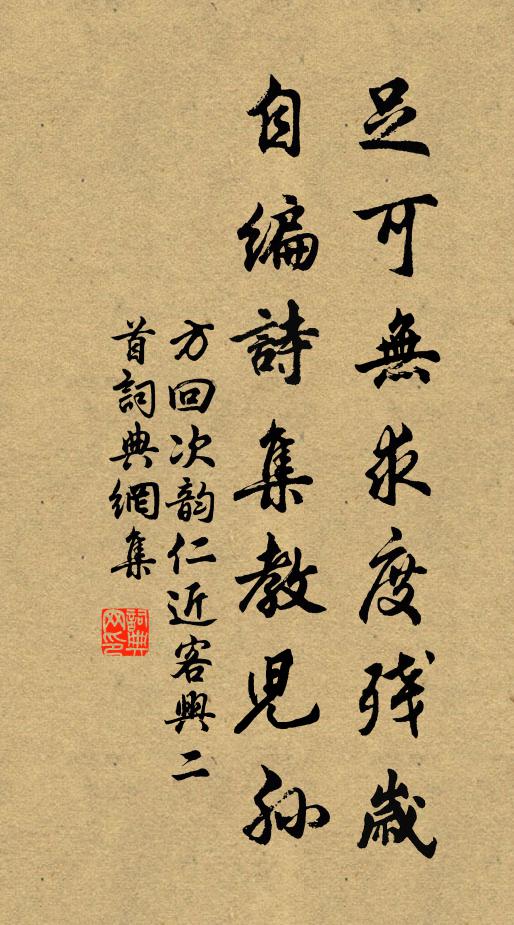 足可無求度残歲
自編詩集教兒孫
方回次韵仁近客興二
首詞典網集
詞典网印